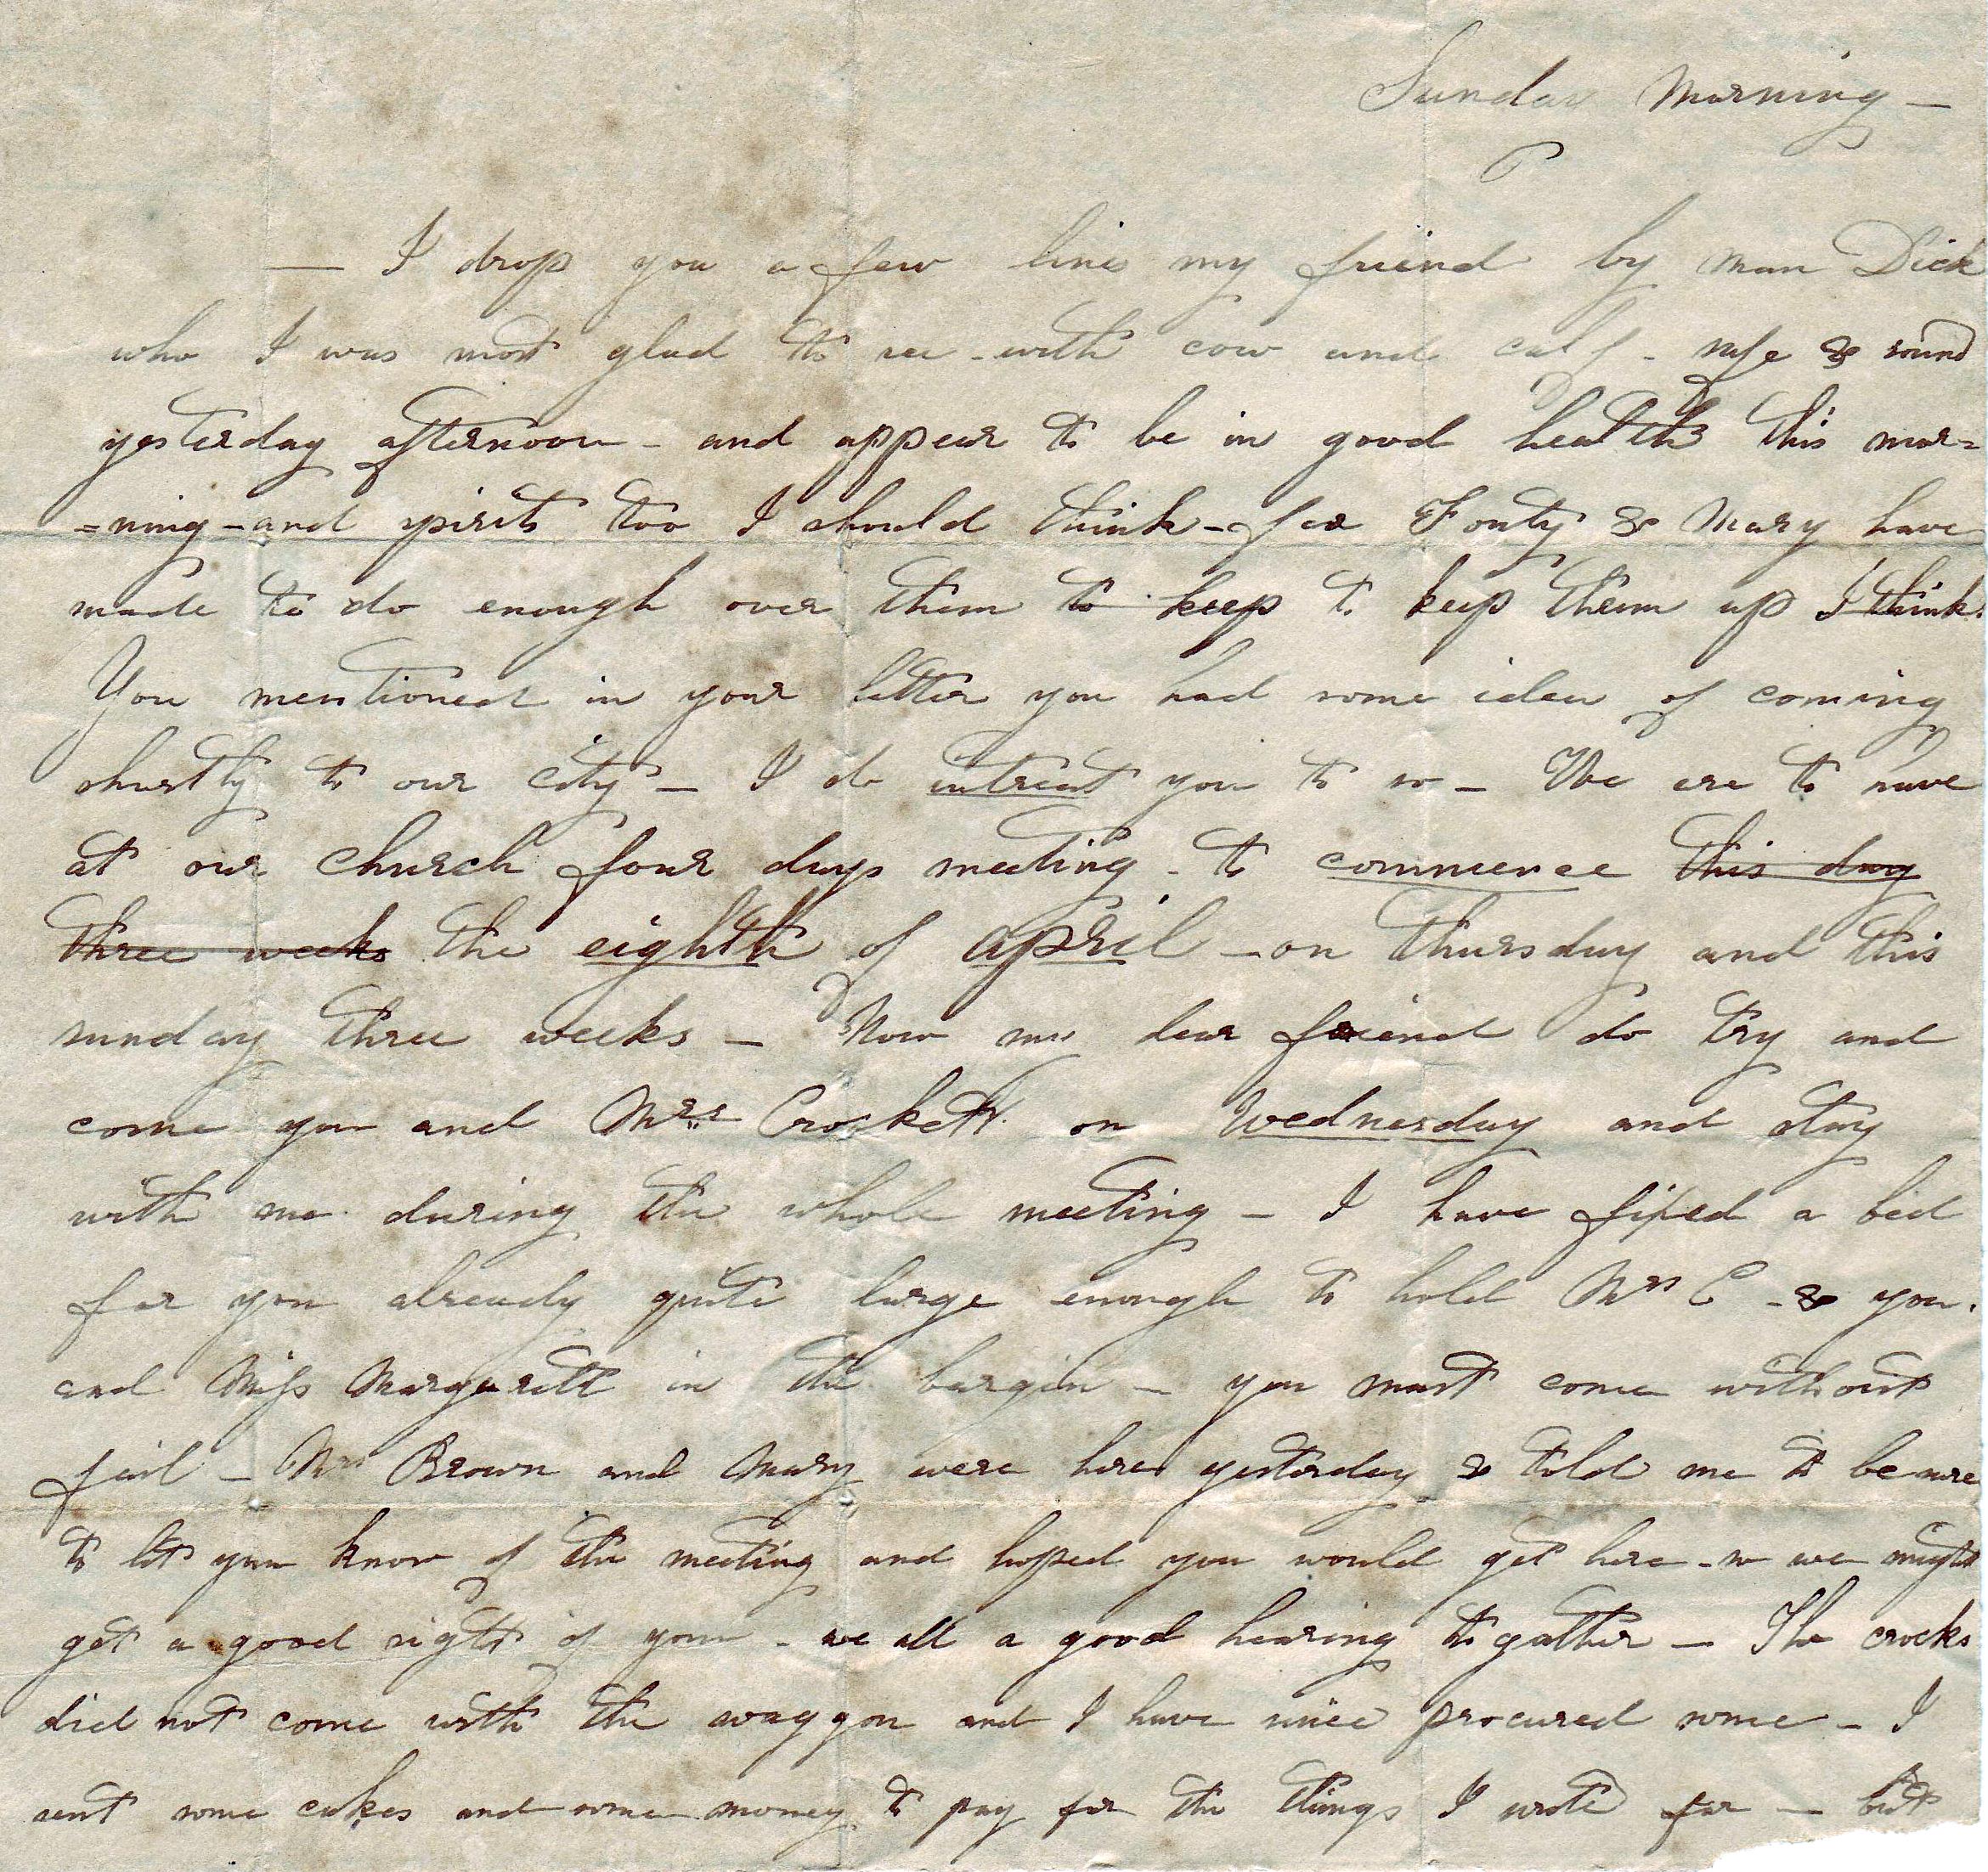 Sunday Morning —
— I drop you a few line my friend by man Dick
who I was most glad to see - with cow and calf - safe & sound
yesterday afternoon - and appear to be in good health this mor=
=ning - and spirits too I should think - for Fonty & Mary have
made to do enough over them to keep to keep them up I think.
You mentioned in your letter you had some idea of coming
shortly to our city — I do intreat you to so — We are to have
at our church four days meeting - to commence this day
three weeks the eighth of april - on Thursday and this
sunday three weeks — Now my dear friend do try and
come you and Mrs Crockett on Wednesday and stay
with me during the whole meeting — I have fixed a bed
for you already quite large enough to hold Mrs C - & you.
and Miss Margarett in the bargin — you must come without
fail — Mrs Brown and Mary were here yesterday & told me to be sure
to let you know of the meeting and hoped you would get here - so we might
get a good sight of you - we all a good hearing to gather — The crocks
did not come with the waggon and I have since procured some — I
sent some cakes and some money to pay for the things I wrote for — but